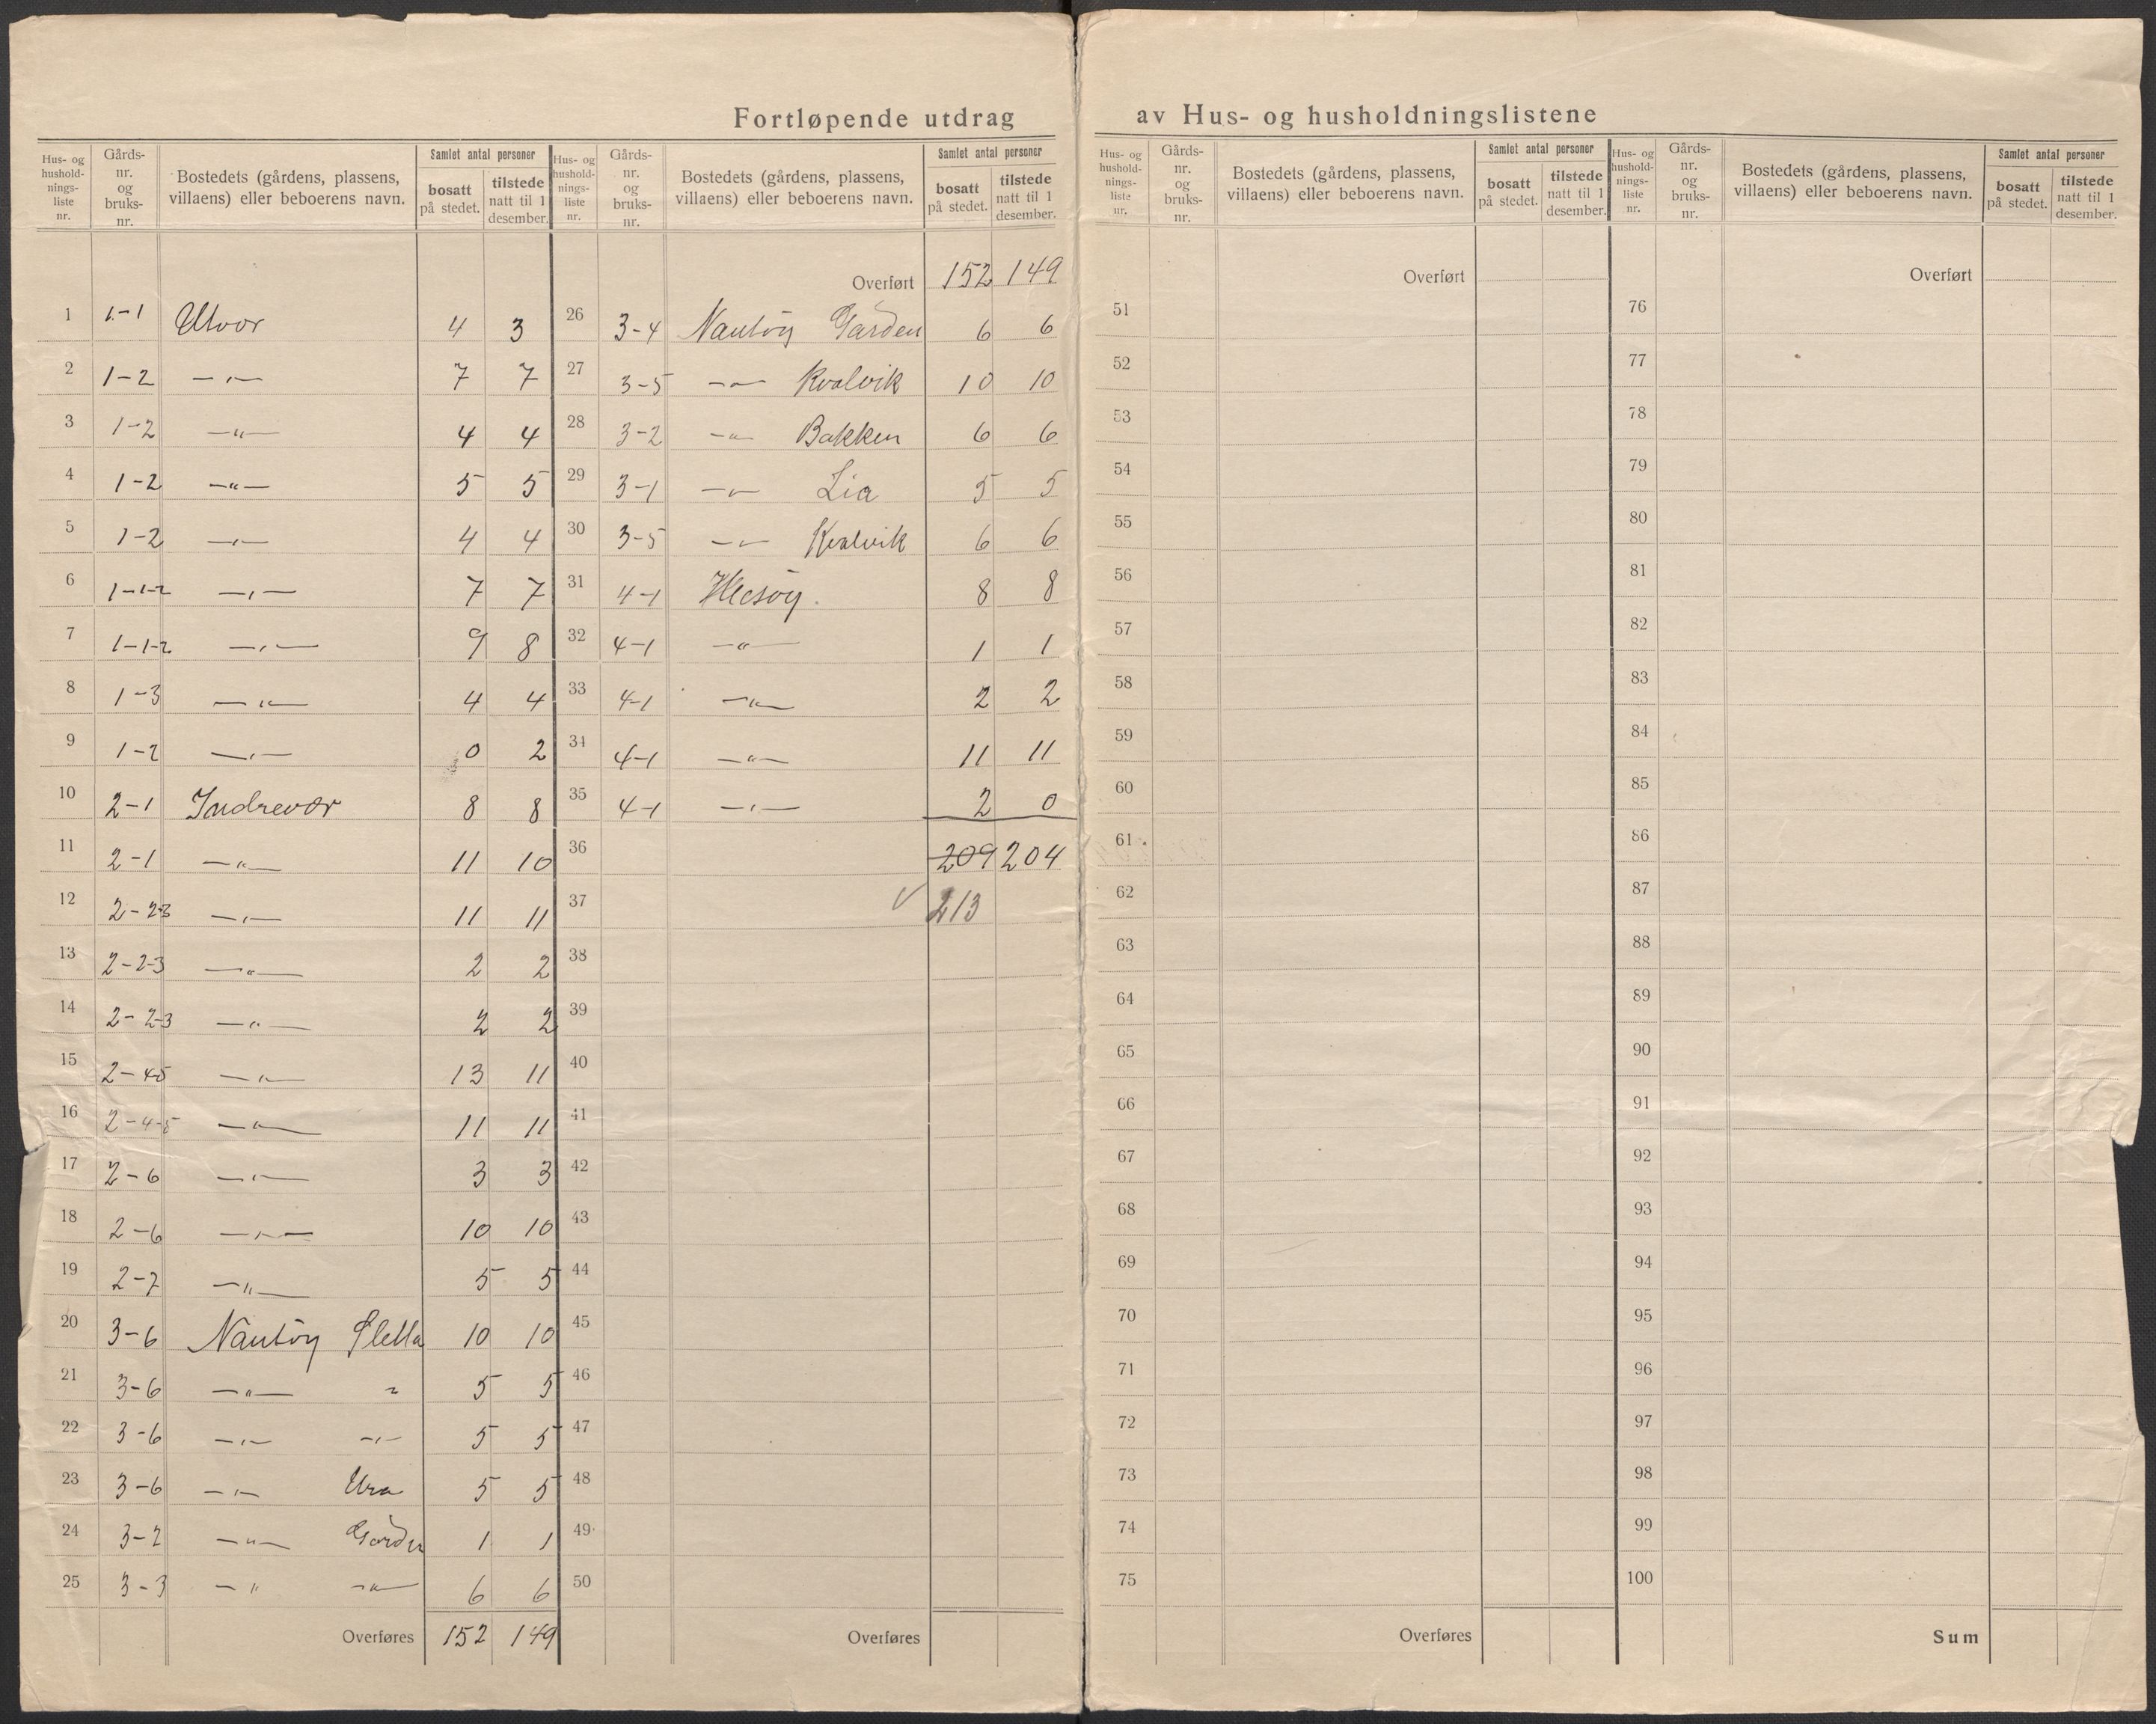 Fortløpende utdrag av Hus- og husholdningslistene
Hus- og hushold-nings-liste nr.
Gårds-nr. og bruks-nr.
Bostedets (gårdens, plassens, villaens) eller beboerens navn.
Samlet antal personer
bosatt på stedet.
tilstede natt til 1 desember.
1 1-1 Utvær 4 3
2 1-2 —„— 7 7
3 1-2 —„— 4 4
4 1-2 —„— 5 5
5 1-2 —„— 4 4
6 1-1-2 —„— 7 7
7 1-1-2 —„— 9 8
8 1-3 —„— 4 4
9 1-2 —„— 0 2
10 2-1 Indrevær 8 8
11 2-1 —„— 11 10
12 2-2-3 —„— 11 11
13 2-2-3 —„— 2 2
14 2-2-3 —„— 2 2
15 2-45 —„— 13 11
16 2-4-5 —„— 11 11
17 2-6 —„— 3 3
18 2-6 —„— 10 10
19 2-7 —„— 5 5
20 3-6 Nautøy Sletta 10 10
21 3-6 —„— „ 5 5
22 3-6 —„— —„— 5 5
23 3-6 —„— Ura 5 5
24 3-2 —„— Gården 1 1
25 3-3 —„— —„— 6 6
Overføres 152 149
Hus- og hushold-nings-liste nr.
Gårds-nr. og bruks-nr.
Bostedets (gårdens, plassens, villaens) eller beboerens navn.
Samlet antal personer
bosatt på stedet.
tilstede natt til 1 desember.
Overført 152 149
26 3-4 Nautøy Gården 6 6
27 3-5 —„— Kvalvik 10 10
28 3-2 —„— Bakken 6 6
29 3-1 —„— Lia 5 5
30 3-5 —„— Kvalvik 6 6
31 4-1 8 8
32 4-1 —„— 1 1
33 4-1 —„— 2 2
34 4-1 —„— 11 11
35 4-1 —„— 2 0
36 209 204
37 ✓ 213
38
39
40
41
42
43
44
45
46
47
48
49
50
Overføres
Hus- og hushold-nings-liste nr.
Gårds-nr. og bruks-nr.
Bostedets (gårdens, plassens, villaens) eller beboerens navn.
Samlet antal personer
bosatt på stedet.
tilstede natt til 1 desember.
Overført
51
52
53
54
55
56
57
58
59
60
61
62
63
64
65
66
67
68
69
70
71
72
73
74
75
Overføres
Hus- og hushold-nings-liste nr.
Gårds-nr. og bruks-nr.
Bostedets (gårdens, plassens, villaens) eller beboerens navn.
Samlet antal personer
bosatt på stedet.
tilstede natt til 1 desember.
Overført
76
77
78
79
80
81
82
83
84
85
86
87
88
89
90
91
92
93
94
95
96
97
98
99
100
Sum